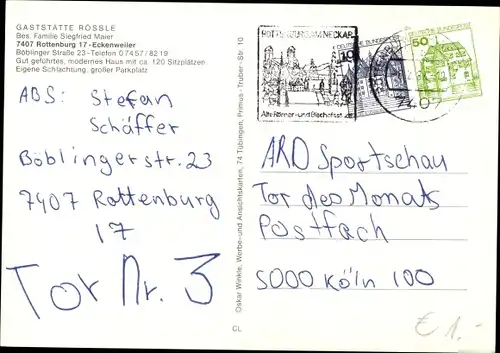 GASTSTÄTTE RÖSSLE
Bes. Familie Siegfried Maier
7407 Rottenburg 17-Eckenweiler
Böblinger Straße 23-Telefon 0 74 57/82 19
Gut geführtes, modernes Haus mit ca. 120 Sitzplätzen
Eigene Schlachtung, großer Parkplatz
ABS: Stefan
Schäffer
Böblingerstr. 23
7407 Rottenburg
17
Tor Nr. 3
Oskar Winkle, Werbe- und Ansichtskarten, 74 Tübingen, Primus-Truber-Str. 10
GL
ROTTENBURG AM NECKAR
Alte Römer- und Bischofsstadt
DEUTSCHE BUNDESPOST
10
DEUTSCHE BUNDESPOST
50
7407
ARD Sportschau
Tor des Monats
Postfach
5000 Köln 100
€ 1.-